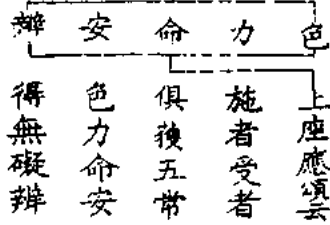 色力命安辨
上座應頌云
施者受者
俱獲五常
色力命安
得無礙辨